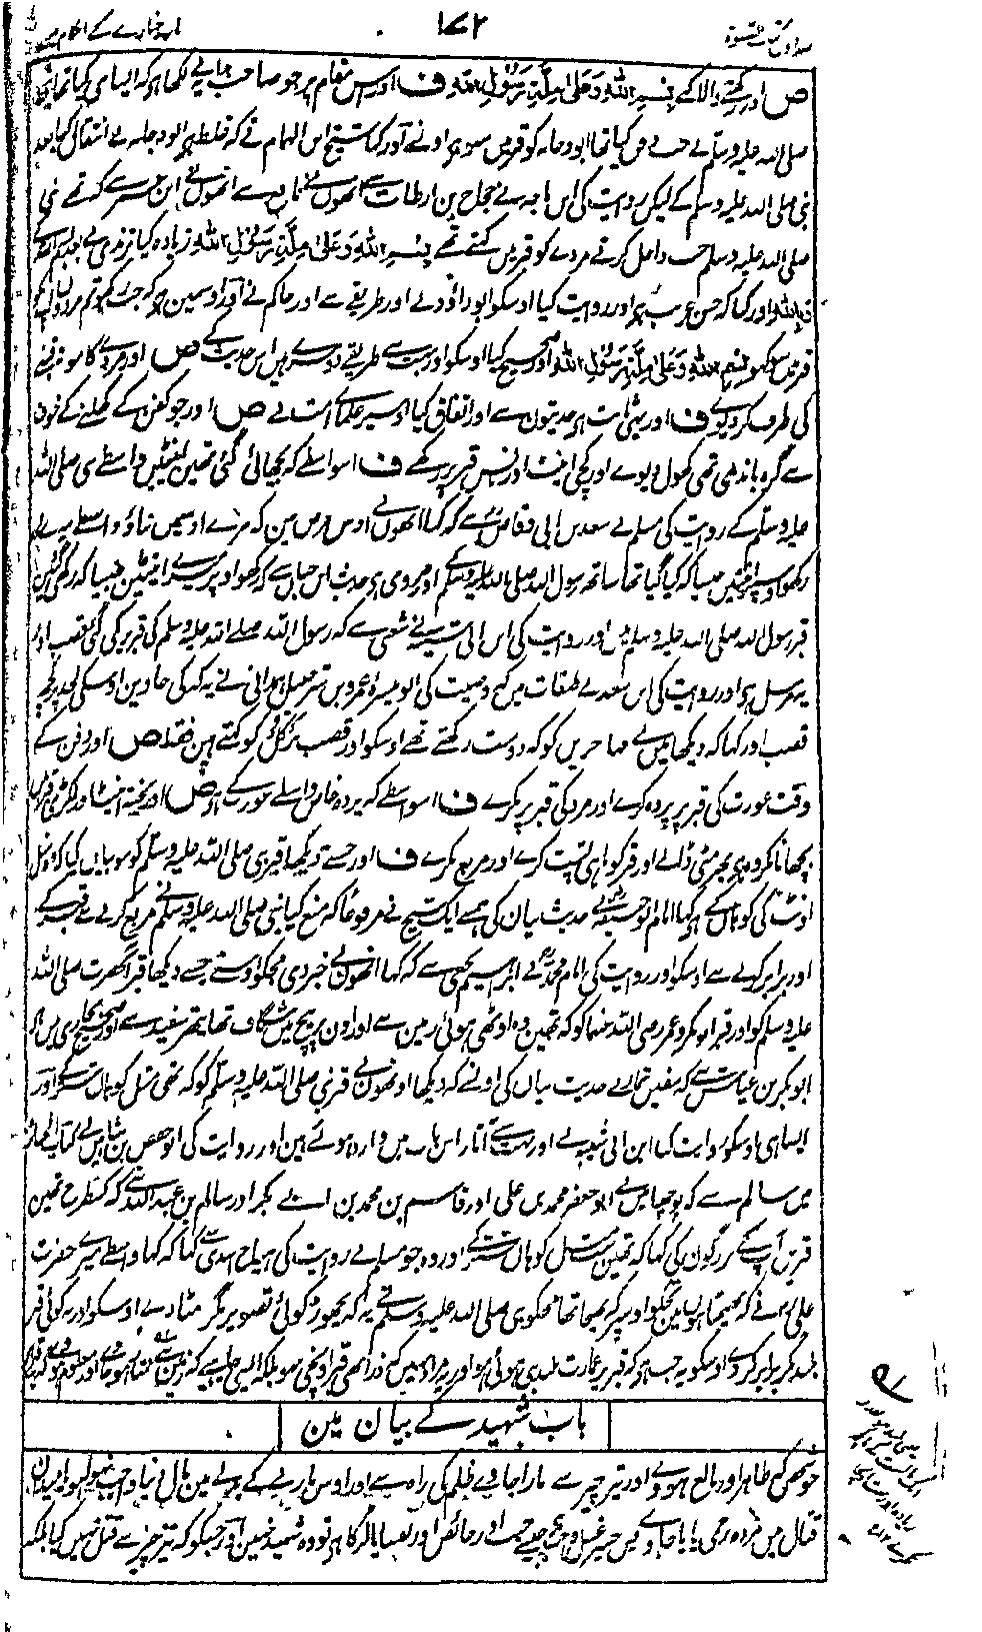 ۱۷۲
ص اور رکھنے والا کہے بسم اللہ وعلی ملۃ رسول اللہ ف اور اس مقام پر جو صاحب ہدایہ نے لکھا ہو کہ ایسا ہی کہا تھا
صلی اللہ علیہ وسلم نے جب ابو دجانہ کو قبر میں اونے اور کہا شیخ ابن الہمام نے کہ غلط ہو ابو دجانہ نے انتقال کیا بعد
نبی صلی اللہ علیہ وسلم کے لیکن روایت کی ابن ماجہ نے حجاج بن ارطات سے انھوں نے نافع سے انھوں نے ابن عمر سے کہ تھے نبی
صلی اللہ علیہ وسلم جب داخل کرتے مردے کو قبر میں کہتے تھے بسم اللہ وعلی ملۃ رسول اللہ زیادہ کیا ترمذی نے بعد بسم اللہ کے
وباللہ اور کہا کہ حسن غریب ہو اور روایت کیا اوسکو ابو داؤد نے اور طریقے سے اور حاکم نے اور اوسمین ہو کہ جب رکھو تم مردوں کو
قبر میں کہو بسم اللہ وعلی ملۃ رسول اللہ اور صحیح کیا اوسکو اور بہت سے طریقے دوسرے ہیں اس حدیث کے ص اور مردے کا مونھ قبلے
کی طرف کر دیوے ف اور یہی ثابت ہو حدیثوں سے اور اتفاق کیا اوسپر علمائے امت نے ص اور جو کفن کے کھلنے کے خوف
سے گرہ باندھی تھی کھول دیوے اور کچی اینٹ اور بانس قبر پر رکھے ف اسواسطے کہ بچھائی گئی تھین اینٹیں واسطے نبی صلی اللہ
علیہ وسلم کے روایت کی مسلم نے سعد بن ابی وقاص سے کہ کہا انھوں نے اوس مرض مین کہ مرے اوسمیں بناؤ واسطے میرے
رکھو اوسپر اینٹیں جیسا کہ کیا گیا تھا ساتھ رسول اللہ صلی اللہ علیہ وسلم کے اور مروی ہو حدیث ابن حبان سے کہ رکھو اوپر میرے اینٹین جیسا کہ رکھی گئین
قبر رسول اللہ صلی اللہ علیہ وسلم میں اور روایت کی ابن ابی شیبہ نے شعبی سے کہ رسول اللہ صلے اللہ علیہ وسلم کی قبر پر رکھی گئی قصب اور
یہ مرسل ہو اور روایت کی ابن سعد نے طبقات میں کہ وصیت کی ابو میسرہ عمرو بن شرحبیل ہمدانی نے یہ کہ کی جاوین اوسکی لحد پر کچھ
قصب اور کہا کہ دیکھا میں نے مہاجرین کو کہ دوست رکھتے تھے اوسکو اور قصب نرکل کو کہتے ہین فقط ص اور دفن کے
وقت عورت کی قبر پر پردہ کرے اور مرد کی قبر پر نکرے ف اسواسطے کہ پردہ خاص واسطے عورت کے ہو ص اور پختہ اینٹ اور لکڑی قبر میں
بچھانا مکروہ ہو پھر مٹی ڈالے اور قبر کو ماہی پشت کرے اور مربع نکرے ف اور جسنے دیکھا قبر نبی صلی اللہ علیہ وسلم کو سو بیان کیا کہ وہ مثل
اونٹ کی کوہان کے ہو کہا امام ابو حنیفہ نے حدیث بیان کی ہمسے ایک شیخ نے مرفوعا کہ منع کیا نبی صلی اللہ علیہ وسلم نے مربع کرنے سے قبر کے
اور برابر کرنے سے اوسکو اور روایت کی امام محمد نے ابراہیم نخعی سے کہ کہا انھوں نے خبر دی مجھکو اوسنے جسنے دیکھا قبر آنحضرت صلی اللہ
علیہ وسلم کو اور قبر ابو بکر و عمر رضی اللہ عنہما کو کہ تھین وہ اوٹھی ہوئی زمین سے اور اون پر بیچ میں شگاف تھا پتھر سفید سے اور صحیح بخاری میں ہو
ابو بکر بن عیاش سے کہ سفین تمار نے حدیث بیان کی اونسے کہ دیکھا اونھوں نے قبر نبی صلی اللہ علیہ وسلم کو کہ تھی مثل کوہان شتر کے اور
ایسا ہی اوسکو روایت کیا ابن ابی شیبہ نے اور بہت سے آثار اس باب میں وارد ہوئے ہین اور روایت کی ابو حفص بن شاہین نے کتاب الجنائز
میں سالم سے کہ پوچھا میں نے ابو جعفر محمد بن علی اور قاسم بن محمد بن ابی بکر اور سالم بن عبد اللہ سے کہ کسطرح تھین
قبریں آپ کے بزرگون کی کہا کہ تھین مثل کوہان شتر کے اور وہ جو مسلم نے روایت کی ہیاج اسدی سے کہا کہ کہا واسطے میرے حضرت
علی نے کہ بھیجتا ہوں مین تجھکو اوسپر کہ بھیجا تھا مجھکو نبی صلی اللہ علیہ وسلم نے یہ کہ نچھوڑ کوئی تصویر مگر مٹا دے اوسکو اور نہ کوئی قبر
بلند مگر برابر کر دے اوسکو یہ جب ہو کہ قبر پر عمارت بلند بنی ہوئی ہو اور یہ مراد نہیں کہ ذرا بھی قبر اونچی نہو بلکہ ایسی چاہیے کہ زمین سے ہو جائے اور معلوم ہووے کہ
باب شہید کے بیان مین
جو شخص کہ طاہر اور بالغ ہووے اور تیز چیز سے مارا جاوے ظلم کی راہ سے اور اوس مارنے کے بدلے مین مال نہ واجب ہو یا میدان
قتال میں مردہ زخمی پایا جاوے پس غسل جیسے جنب اور حائض اور نفسا یا لڑکا ہو تو وہ شہید نہین اور جسکو کہ تیز چیز سے قتل نہیں کیا بلکہ